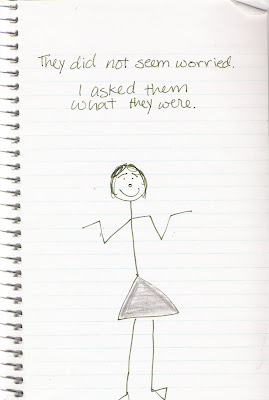 They did not seem worried.
I asked them
what they were.